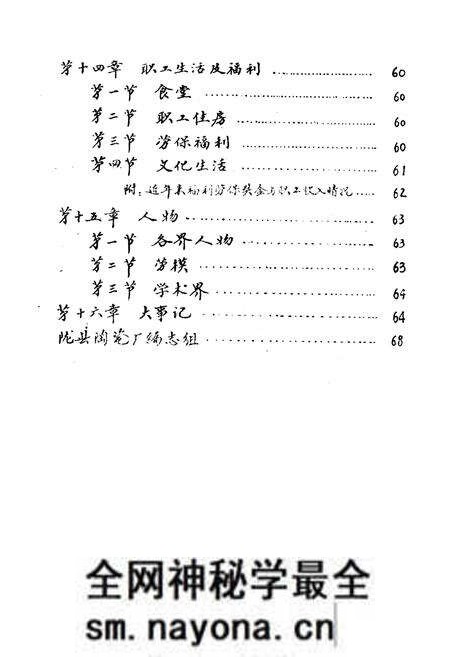 第十四章 职工生活及福利 ………………… 60
第一节 食堂 ………………… 60
第二节 职工住房 ………………… 60
第三节 劳保福利 ………………… 60
第四节 文化生活 ………………… 61
附：近年来福利劳保奖金与职工收入情况 …… 62
第十五章 人物 ………………… 63
第一节 各界人物 ………………… 63
第二节 劳模 ………………… 63
第三节 学术界 ………………… 64
第十六章 大事记 ………………… 64
陇县陶瓷厂编志组 ………………… 68
全网神秘学最全
sm.nayona.cn